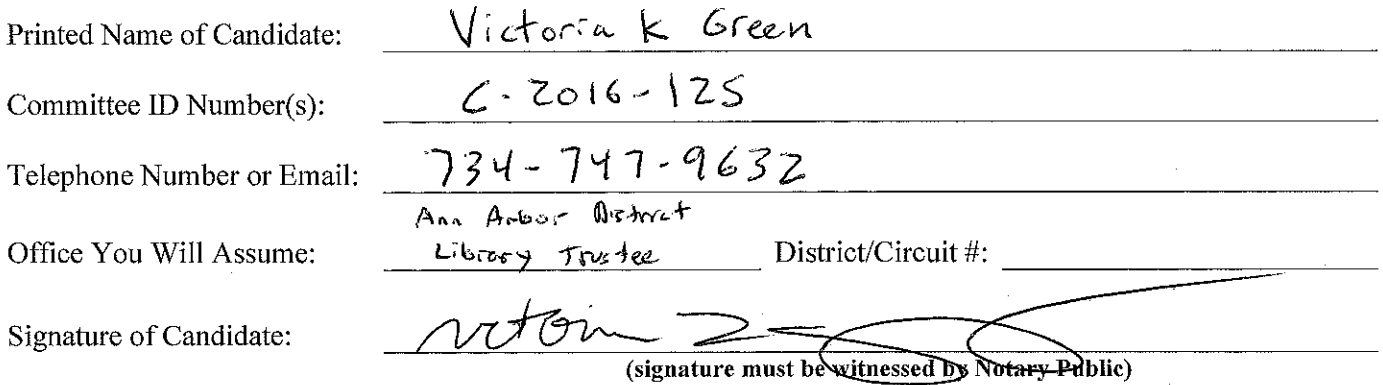 Printed Name of Candidate: Victoria K Green
Committee ID Number(s): C-2016-125
Telephone Number or Email: 734-747-9632
Ann Arbor District
Office You Will Assume: Library Trustee District/Circuit #:
Signature of Candidate:
(signature must be witnessed by Notary Public)